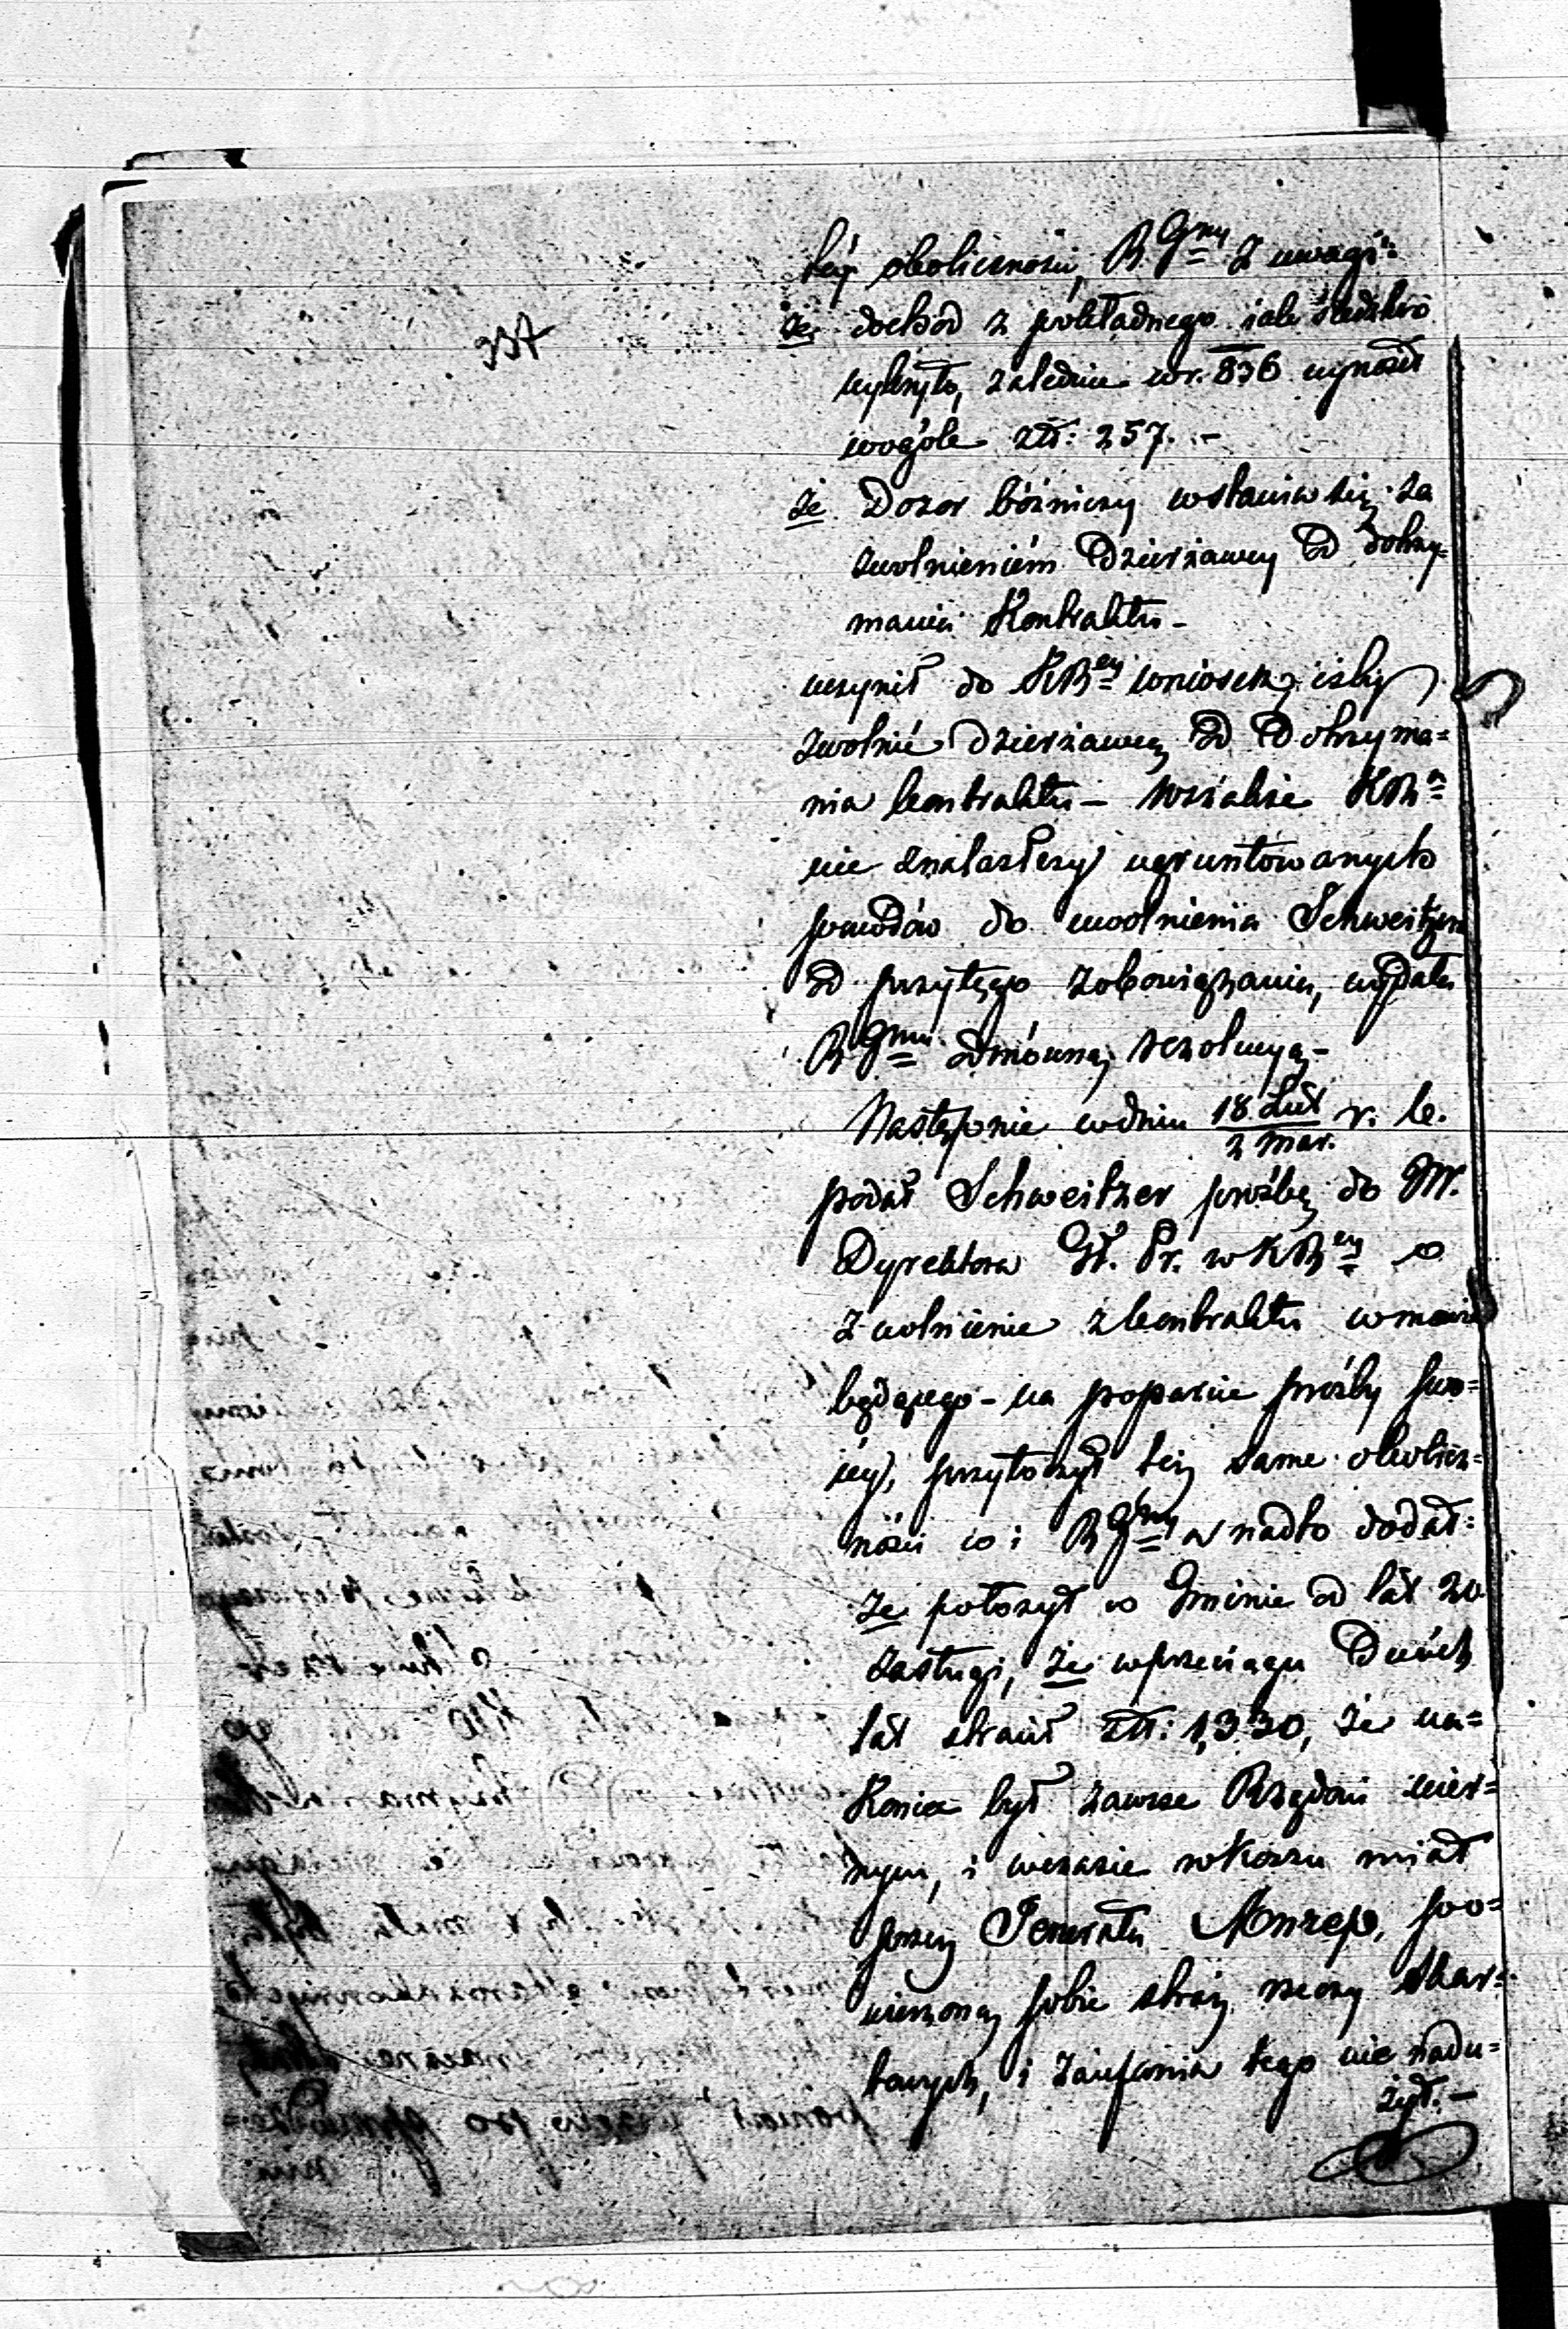 337
téy okoliczności, R Gny z uwagi:
że dochód z pokładnego jak śledztwo
wykryło, zaledwie w r. 836 wynosił
wogóle złł: 257. –
że Dozor bóźniczy wstawiw się za
zwolnieniem Dzierżawcy od dotrzy-
mania Kontraktu –
uczynił do KREy wniosek, iżby
zwolnić dzierżawcę od dotrzyma=
nia kontraktu – wszakże KRa
nie znalazłszy ugruntowanych
powodów do uwolnienia Schweitzera
od przyjętego zobowiązania, wydała
R Gmu odmówną rezolucyą –
Następnie w dniu 18 Lut / 2 Mar. r. b.
podał Schweitzer prośbę do W.
Dyrektora Gł. Pr. w KREy o
zwolnienie z kontraktu w mowie
będącego – na poparcie prośby swo=
jéy, przytoczył téż same okolicz=
ności co i R Gny a nadto dodał:
że położył w Gminie od lat 20
zasługi, że w przeciągu dwóch
lat stracił złł: 1,330, że na=
koniec był zawsze Rządowi wier=
nym, i w czasie rokoszu miał
przez Jenerała po=
wierzoną sobie straż rzeczy skar=
bowych, i zaufania tego nie nadu=
żył. –